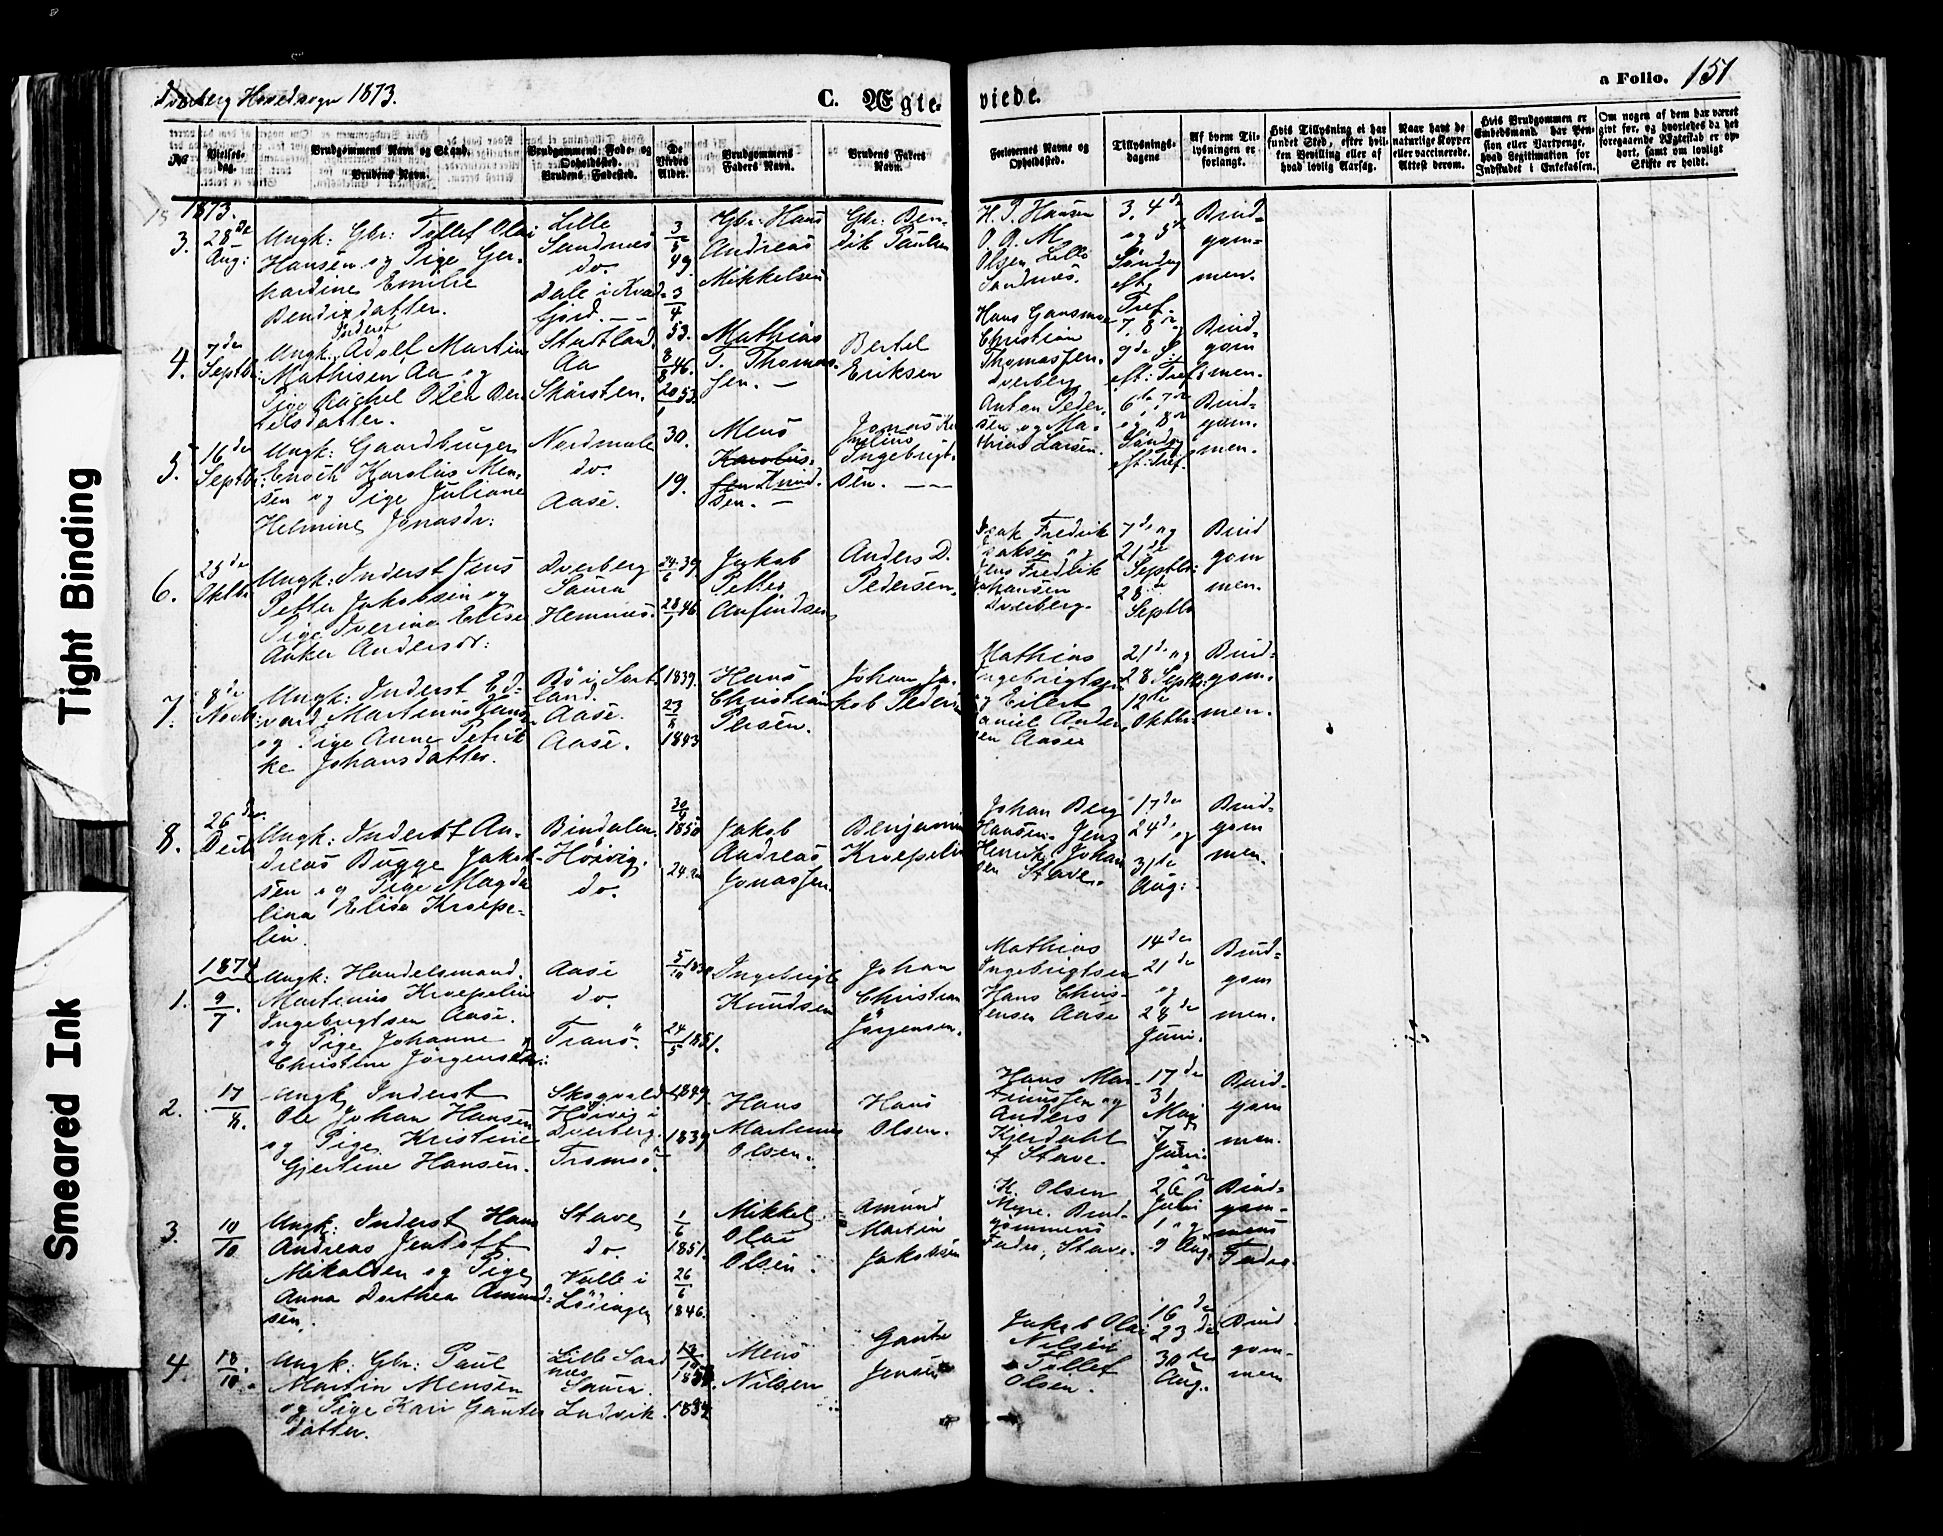 Dverberg Hovedsogn 1873.
C. Ægte-
viede.
a Folio. 151
No
Vielses-
dag.
Brudgommens Navn og Stand.
Brudens Navn.
Brudgommens Føde- og
Opholdssted.
Brudens Fødested.
De
Viedes
Alder.
Brudgommens
Faders Navn.
Brudens Faders
Navn.
Forlovernes Navne og
Opholdssted.
Tillysnings-
dagene
Af hvem Til-
lysningen er
forlangt.
Hvis Tillysning ei har
fundet Sted, efter hvil-
ken Bevilling eller af
hvad lovlig Aarsag.
Naar havt de
naturlige Kopper
eller vaccinerede.
Attest derom.
Hvis Brudgommen er
Embedsmand, har Pen-
sion eller Vartpenge,
hvad Legitimation for
Indskudet i Enkekassen.
Om nogen af dem har været
gift før, og hvorledes da det
foregaaende Ægteskab er op-
hørt, samt om lovligt
Skifte er holdt.
1873.
3.
28de
Aug:
Ungk: Gbr: Tollef Olai
Hansen og Pige Ger-
hardine Emilie
Bendixdatter.
Lille
Sandnes
do.
Dale i Kvæd-
fjord. --
3/5
49.
3/4
53.
Gbr: Hans
Andreas
Mikkelsen
Gbr: Ben-
dik Paulsen
H. P. Hansen
O. A. M.
Olsen Lille
Sandnes.
3, 4de
og 5te
Søndag
eft.
Tref.
Brud-
gom-
men.
4.
7de
Septbr:
Inderst
Ungk. Adolf Martin
Mathisen Aa og
Pige Rachel Olea Ber-
telsdatter.
Stadtland.
Aa
Skarsten.
8/8 46.
20/1 53.
Mathias
T. Thomas-
sen. -
Bertel
Eriksen
Hans Gansmoe
Christian
Thomassen.
Dverberg
7, 8de og
9de S.
eft: Tref:
Brud-
gom
men.
5.
16de
Septbr:
Ungk: Gaardbruger
Enoch Karolus Men-
sen og Pige Juliane
Helmine Jonasdr:
Nordmele
do.
Aase.
30.
19.
Mens
Karolus-
sen Knud-
sen. -
Jonas Kor
nelius
Ingebrigt-
sen. ---
Anton Peder-
sen og Ma-
thias Larsen.
6te, 7de
og 8de
Søndag
eft: Tref.
Brud-
gom-
men.
6.
25de
Oktbr
Ungk: Inderst Jens
Petter Jakobsen og
Pige Iverine Elise
Anker Andersdr:
Dverberg
Saura
Hemnes.
24/6 39
28/1 46
Jakob
Petter
Anfindsen
Anders D.
Pedersen.
Isak Fredrik
Isaksen og
Jens Fredrik
Johansen
Dverberg.
7de og
21de
Septbr:
28de
Septbr
Brud
gom
men.
7.
8de
Novbr:
Ungk: Inderst Ed-
vard Martinus Hans-
og Pige Anne Petrik-
ke Johansdatter.
Bø i Sort-
land.
Aase.
Aase.
1839.
23/
1843
Hans
Christian
Persen.
Johan Ja-
kob Peders
Mathias
Ingebrigtsen
og Eilert
Daniel Ander
sen Aase
21de og
28 Septbr:
12te
Oktbr:
Brud-
gom-
men.
8.
26de
Decb
Ungk: Inderst An-
dreas Bugge Jakob-
sen og Pige Magda
lina Elisa Kræpe-
lin.
Bindalen.
Høivig.
do.
30/9
1850
24. Aa
Jakob
Andreas
Jonassen
Benjamin
Kræpelin
Johan Berg
Hansen. Jens
Henrik Johan
sen Stave.
17de
24de og
31te
Aug:
Brud-
gom
men.
1874
1.
9/7
Ungk: Handelsmand
Martinus Kræpelin
Ingebrigtsen Aase.
og Pige Johanne
Christine Jørgensdr:
Aase
do.
Tranø.
5/10
24/5 1851.
Ingebrigt
Knudsen
Johan
Christian
Jørgensen.
Mathias
Ingebrigtsen
Hans Chris-
tensen Aase
14de
21de
og
28de
Juni.
Brud-
gom
men.
2.
17/8.
Ungk. Inderst
Ole Johan Hansen
og Pige Kristine
Gjertine Hansen.
Skogvold
Høivig i
Dverberg.
Tromsø.
1849.
1839
Hans
Martinus
Olsen.
Hans
Olsen.
Hans Mar-
tinussen og
Anders
Kjerdahl
af Stave.
17de
31
Mai
7
Juni.
Brud-
gom
men.
3.
10/10
Ungk: Inderst Hans
Andreas Jentoft
Mikalsen og Pige
Anna Dorthea Amund-
sen.
Stave
do.
Valle i
Lødingen
1/6
1851.
26/6
1846.
Mikkel
Olai
Olsen.
Amund
Martin
Jakobsen
H. Olsen
Myre. Brud-
gommens
Fader, Stave.
26de
Juli
1 og
9 Aug.
Brud-
gom-
mens
Fader.
4.
18/10.
Ungk: Gbr: Paul
Martin Mensen
og Pige Kari Gantes
datter.
Lille Sand
nes
Saura.
Ladvik.
12/10
1834
Mens
Nilsen
Gante
Jensen
Jakob Olai
Nilsen
Tollef
Olsen.
16de
23de
30te
Aug.
Brud
gom-
men
Tight Binding
Smeared Ink